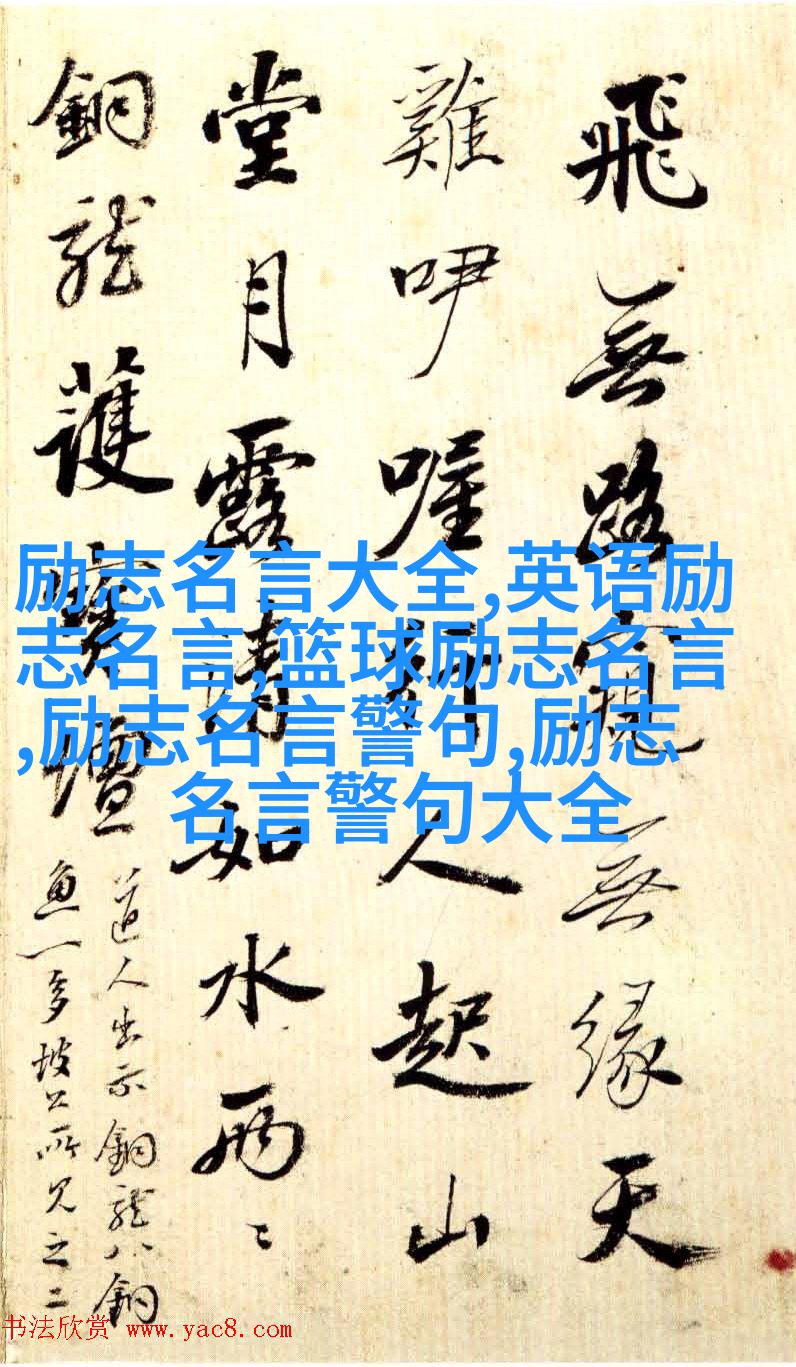 飛無路窺無緣天
雞咿喔行人起山
堂月露清如水兩〻
銅龍護壇
道人出示銅龍八銅
魚一多坡公所見之二
励志名言大全,英语励
志名言,篮球励志名言
,励志名言警句,励志
名言警句大全
书法欣赏 www.yac8.com